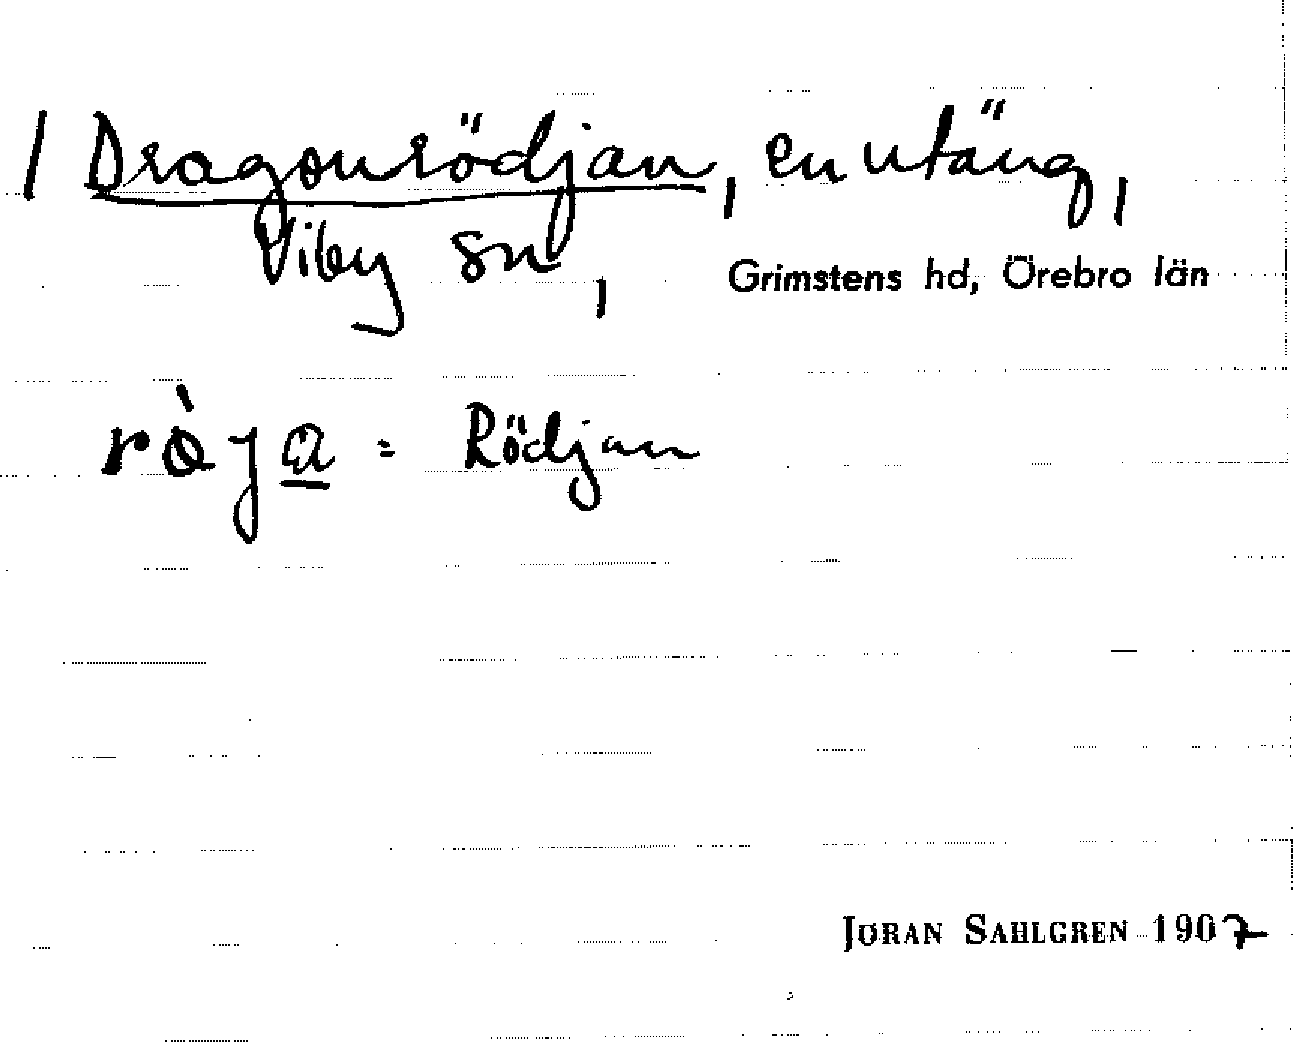 / Dragonrödjan, en utäng,
Viby sn, Grimstens hd, Örebro län
rö̀ja = Rödjan
JÖRAN SAHLGREN 1907